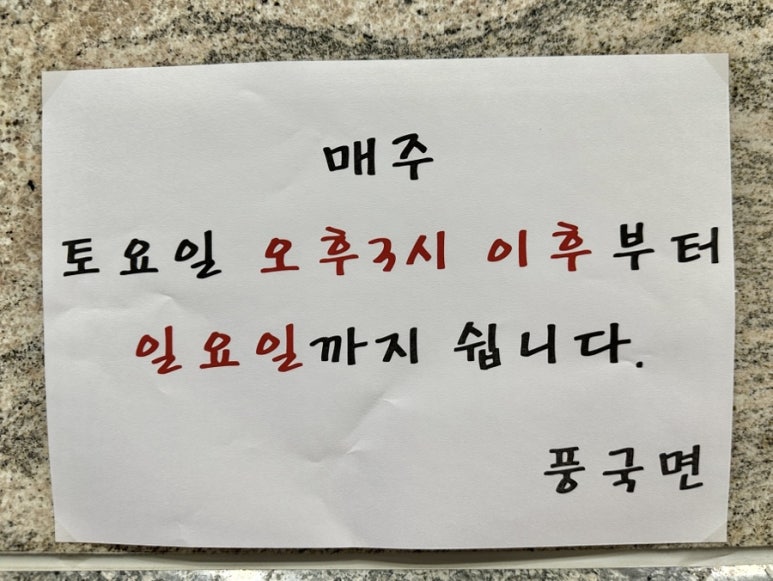 매주
토요일 오후3시 이후부터
일요일까지 쉽니다.
풍국면